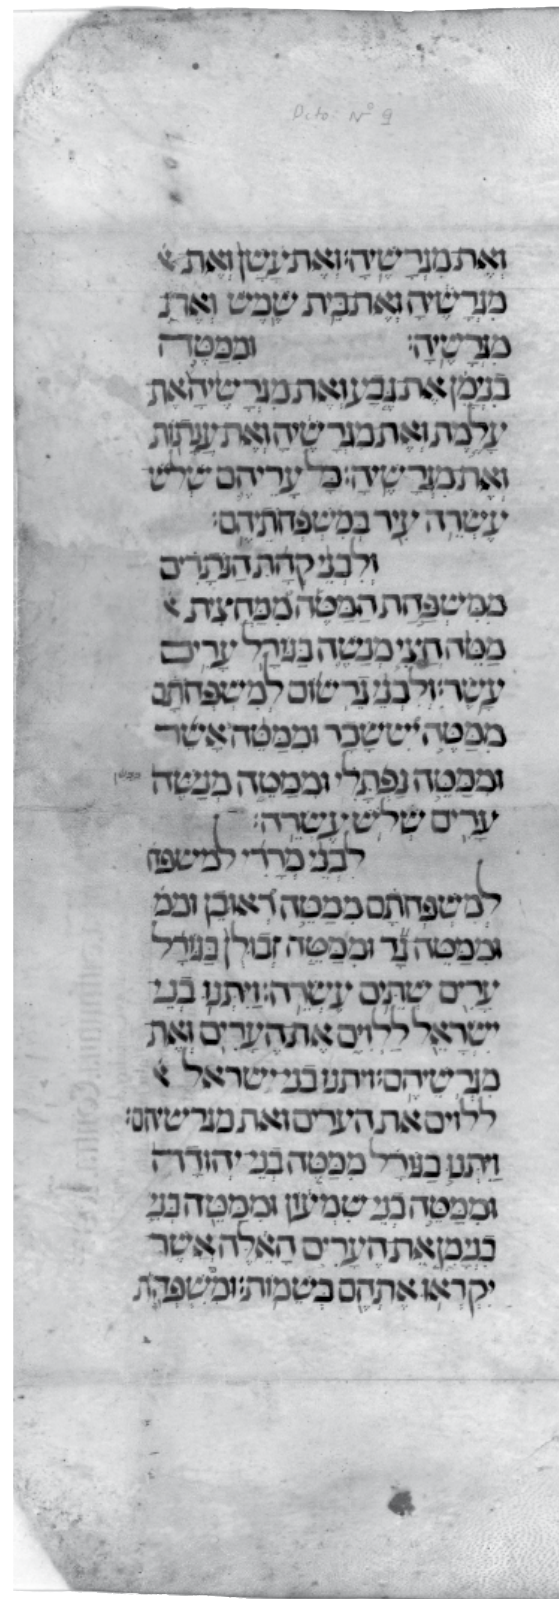 Dcto Nº 9
ואת מגרשיה׃ ואת עשן ואת
מגרשיה ואת בית שמש ואת
מגרשיה׃ וממטה
בנימן את גבע ואת מגרשיה ואת
עלמת ואת מגרשיה ואת ענתות
ואת מגרשיה׃ כל עריהם שלש
עשרה עיר במשפחתיהם׃
ולבני קהת הנתרים
ממשפחת המטה ממחצית
מטה חצי מנשה בגורל ערים
עשר׃ ולבני גרשום למשפחתם
ממטה יששכר וממטה אשר
וממטה נפתלי וממטה מנשה
ערים שלש עשרה׃
לבני מררי למשפח
למשפחתם ממטה ראובן וממ
וממטה גד וממטה זבולן בגורל
ערים שתים עשרה׃ ויתנו בני
ישראל ללוים את הערים ואת
מגרשיהם׃ ויתנו בני ישראל
ללוים את הערים ואת מגרשיהם׃
ויתנו בגורל ממטה בני יהודה
וממטה בני שמעון וממטה בני
בנימן את הערים האלה אשר
יקראו אתהם בשמות׃ וממשפחת